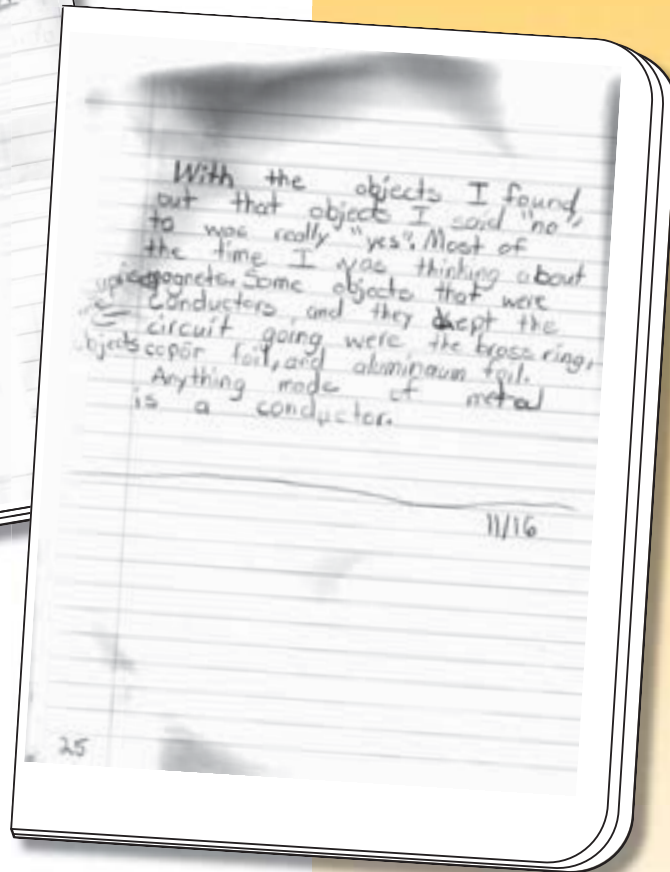 With the objects I found
out that objects I said "no"
to was really "yes". Most of
the time I was thinking about
magnets. Some objects that were
conductors and they kept the
circuit going were the brass ring,
objects copor foil, and aluminaum foil.
Anything made of metal
is a conductor.
11/16
25